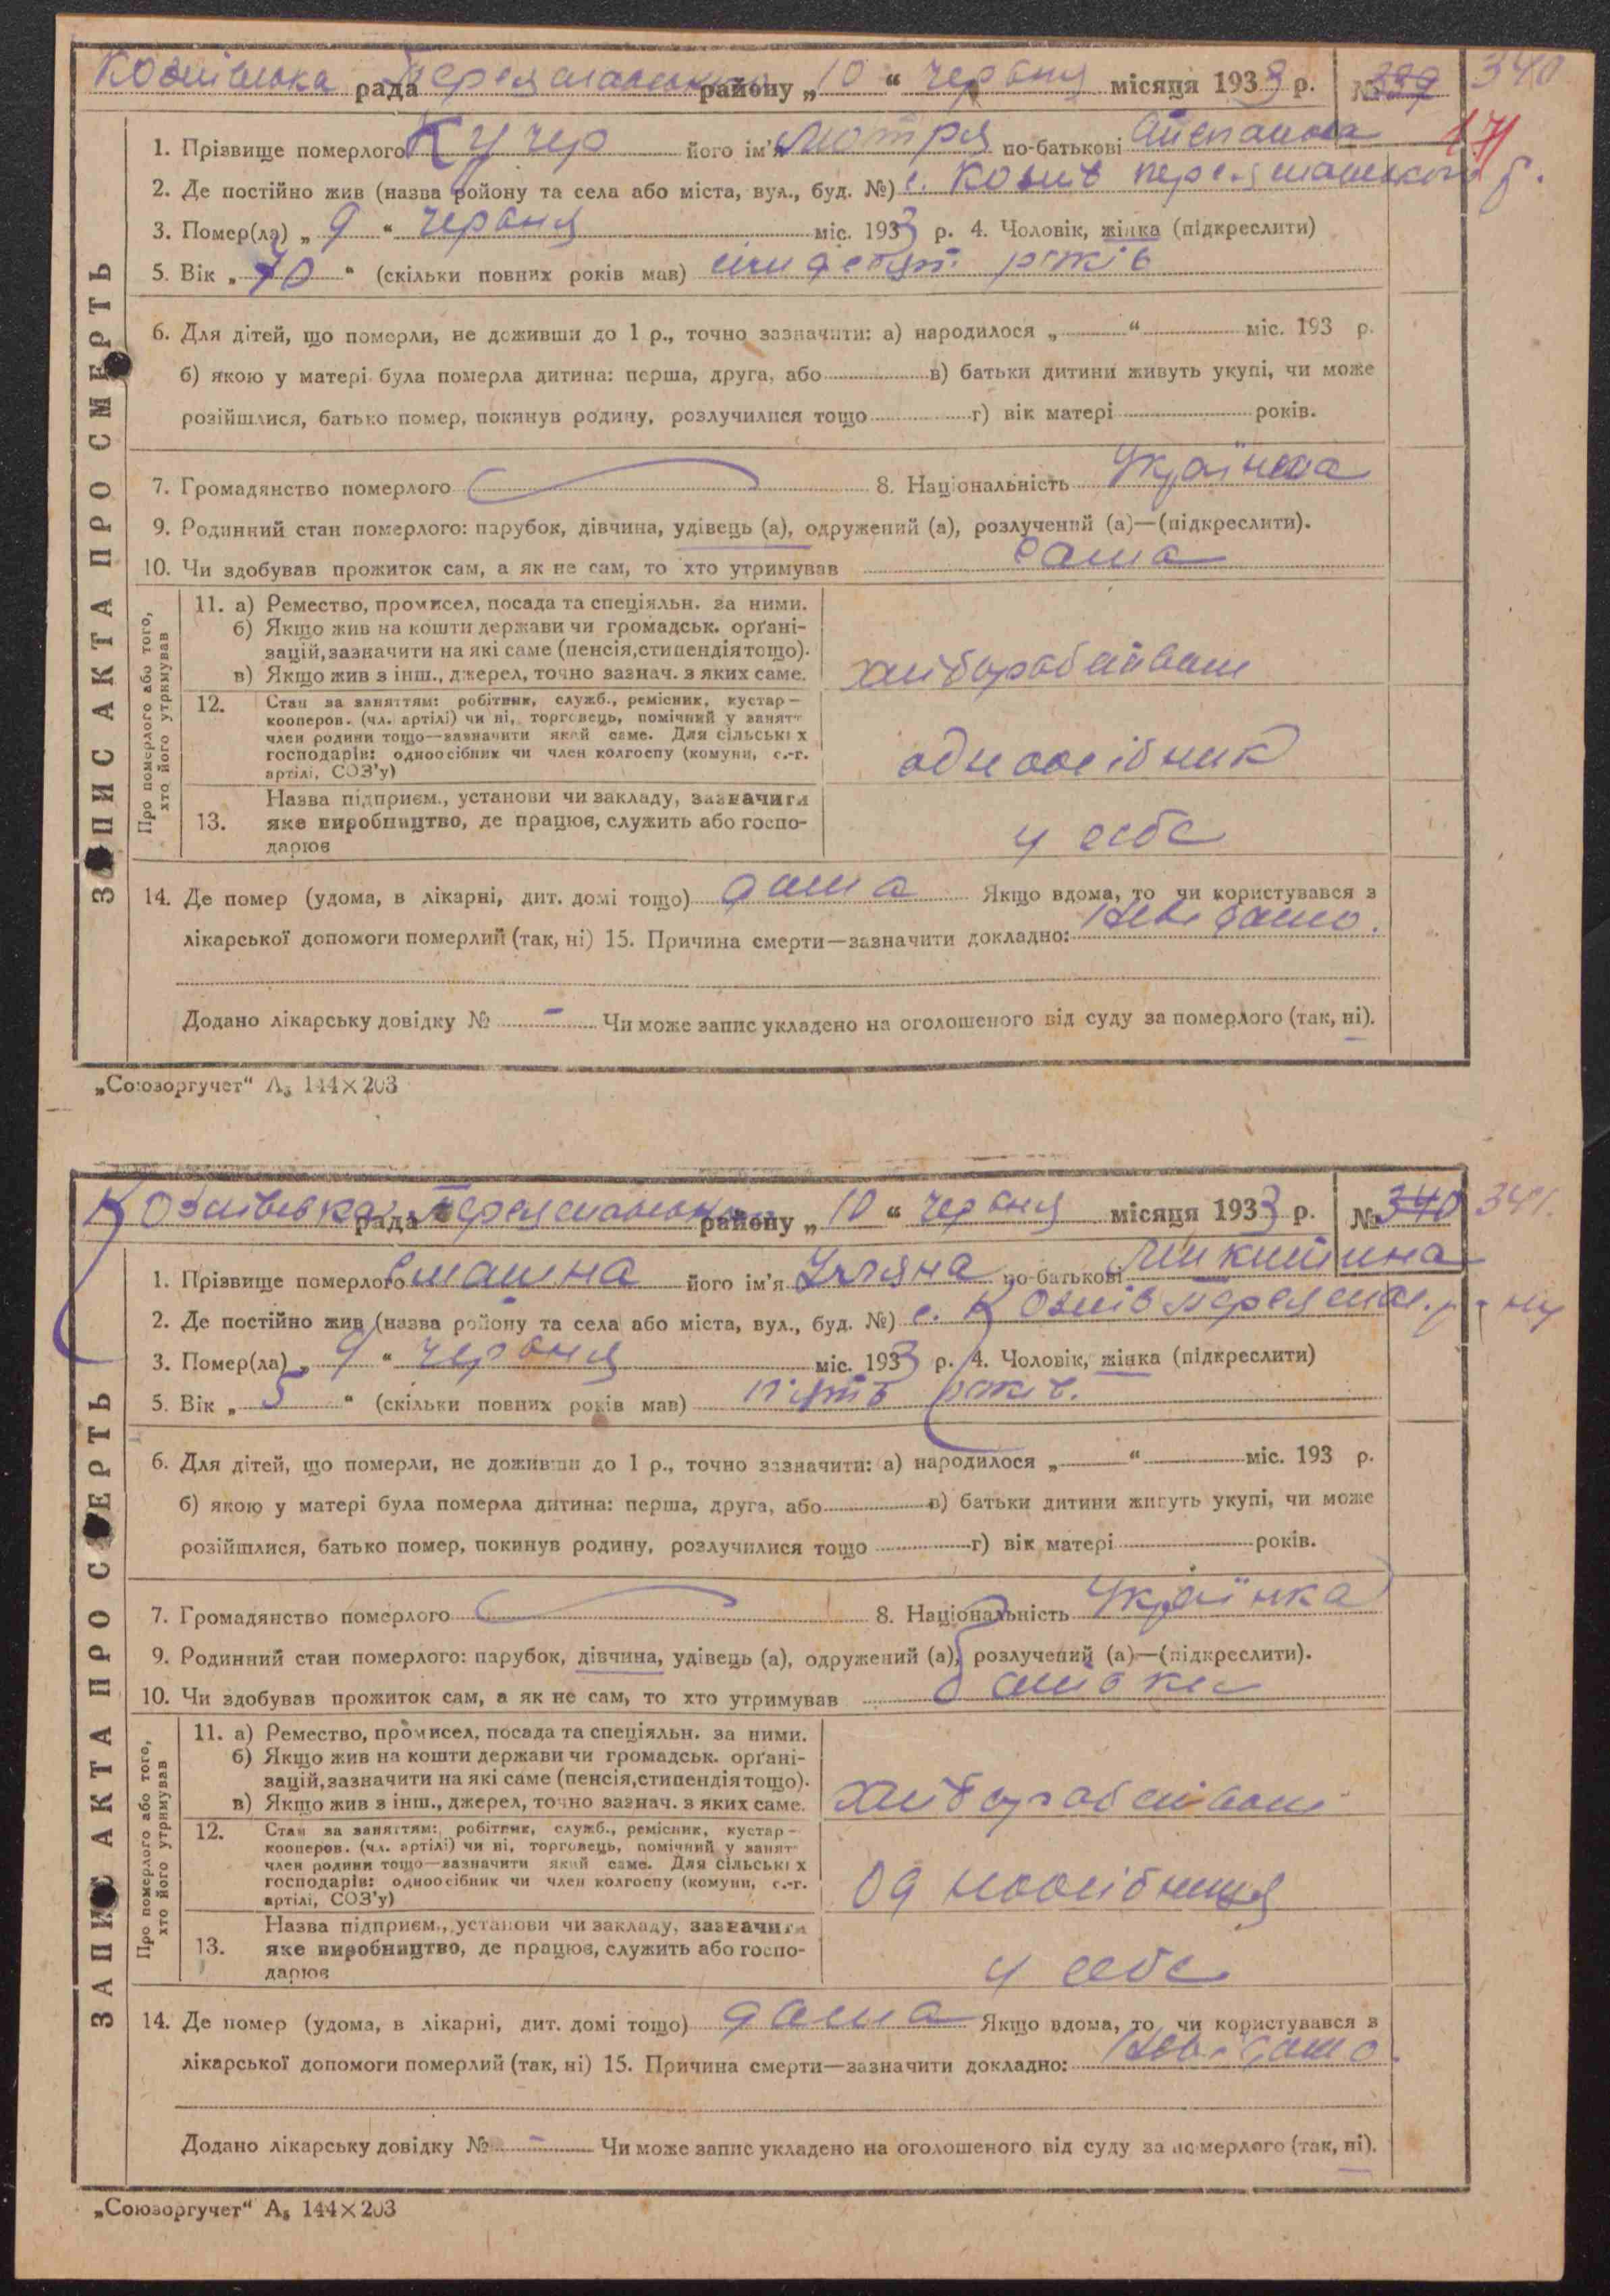 Козиівська рада Переяславського району „10“ червня місяця 1933 р. № 339 340
171
1. Прізвище померлого Кучер його ім'я Мотря по-батькові Степанова
2. Де постійно жив (назва ройону та села або міста, вул., буд. №) с. Козиів Переяславськог р.
3. Помер(ла) „9“ червня міс. 1933 р. 4. Чоловік, жінка (підкреслити)
5. Вік „70“ (скільки повних років мав) сімдесят років
6. Для дітей, що померли, не доживши до 1 р., точно зазначити: а) народилося „ “ міс. 193 р.
б) якою у матері була померла дитина: перша, друга, або в) батьки дитини живуть укупі, чи може
розійшлися, батько помер, покинув родину, розлучилися тощо г) вік матері років.
7. Громадянство померлого 8. Національність Українка
9. Родинний стан померлого: парубок, дівчина, удівець (а), одружений (а), розлучений (а)—(підкреслити).
10. Чи здобував прожиток сам, а як не сам, то хто утримував сама
ЗАПИС АКТА ПРО СМЕРТЬ
Про померлого або того, хто його утримував
11. а) Ремество, промисел, посада та спеціяльн. за ними.
б) Якщо жив на кошти держави чи громадськ. орґані-
зацій, зазначити на які саме (пенсія, стипендія тощо).
в) Якщо жив з інш., джерел, точно зазнач. з яких саме.
хліборобство
12. Стан за заняттям: робітник, служб., ремісник, кустар—
кооперов. (чл. артілі) чи ні, торговець, помічний у занятт
член родини тощо—зазначити який саме. Для сільських
господарів: одноосібник чи член колгоспу (комуни, с.-г.
артілі, СОЗ'у)
одноосібник
Назва підприєм., установи чи закладу, зазначити
13. яке виробництво, де працює, служить або госпо-
дарює
у себе
14. Де помер (удома, в лікарні, дит. домі тощо) дома Якщо вдома, то чи користувався з
лікарської допомоги померлий (так, ні) 15. Причина смерти—зазначити докладно: Невідомо.
Додано лікарську довідку № - Чи може запис укладено на оголошеного від суду за померлого (так, ні).
„Союзоргучет“ А₅ 144×203
Козиівська рада Переяславського району „10“ червня місяця 1933 р. № 340 341.
1. Прізвище померлого його ім'я Уляна по-батькові Микитина
2. Де постійно жив (назва ройону та села або міста, вул., буд. №) с. Козиів Переяслав. р-ну
3. Помер(ла) „9“ червня міс. 1933 р. 4. Чоловік, жінка (підкреслити)
5. Вік „5“ (скільки повних років мав) п'ять років.
6. Для дітей, що померли, не доживши до 1 р., точно зазначити: а) народилося „ “ міс. 193 р.
б) якою у матері була померла дитина: перша, друга, або в) батьки дитини живуть укупі, чи може
розійшлися, батько помер, покинув родину, розлучилися тощо г) вік матері років.
7. Громадянство померлого 8. Національність Українка
9. Родинний стан померлого: парубок, дівчина, удівець (а), одружений (а), розлучений (а)—(підкреслити).
10. Чи здобував прожиток сам, а як не сам, то хто утримував батьки
ЗАПИС АКТА ПРО СМЕРТЬ
Про померлого або того, хто його утримував
11. а) Ремество, промисел, посада та спеціяльн. за ними.
б) Якщо жив на кошти держави чи громадськ. орґані-
зацій, зазначити на які саме (пенсія, стипендія тощо).
в) Якщо жив з інш., джерел, точно зазнач. з яких саме.
хліборобство
12. Стан за заняттям: робітник, служб., ремісник, кустар—
кооперов. (чл. артілі) чи ні, торговець, помічний у занятт
член родини тощо—зазначити який саме. Для сільських
господарів: одноосібник чи член колгоспу (комуни, с.-г.
артілі, СОЗ'у)
одноосібниця
Назва підприєм., установи чи закладу, зазначити
13. яке виробництво, де працює, служить або госпо-
дарює
у себе
14. Де помер (удома, в лікарні, дит. домі тощо) дома Якщо вдома, то чи користувався з
лікарської допомоги померлий (так, ні) 15. Причина смерти—зазначити докладно: Невідомо.
Додано лікарську довідку № - Чи може запис укладено на оголошеного від суду за померлого (так, ні).
„Союзоргучет“ А₅ 144×203